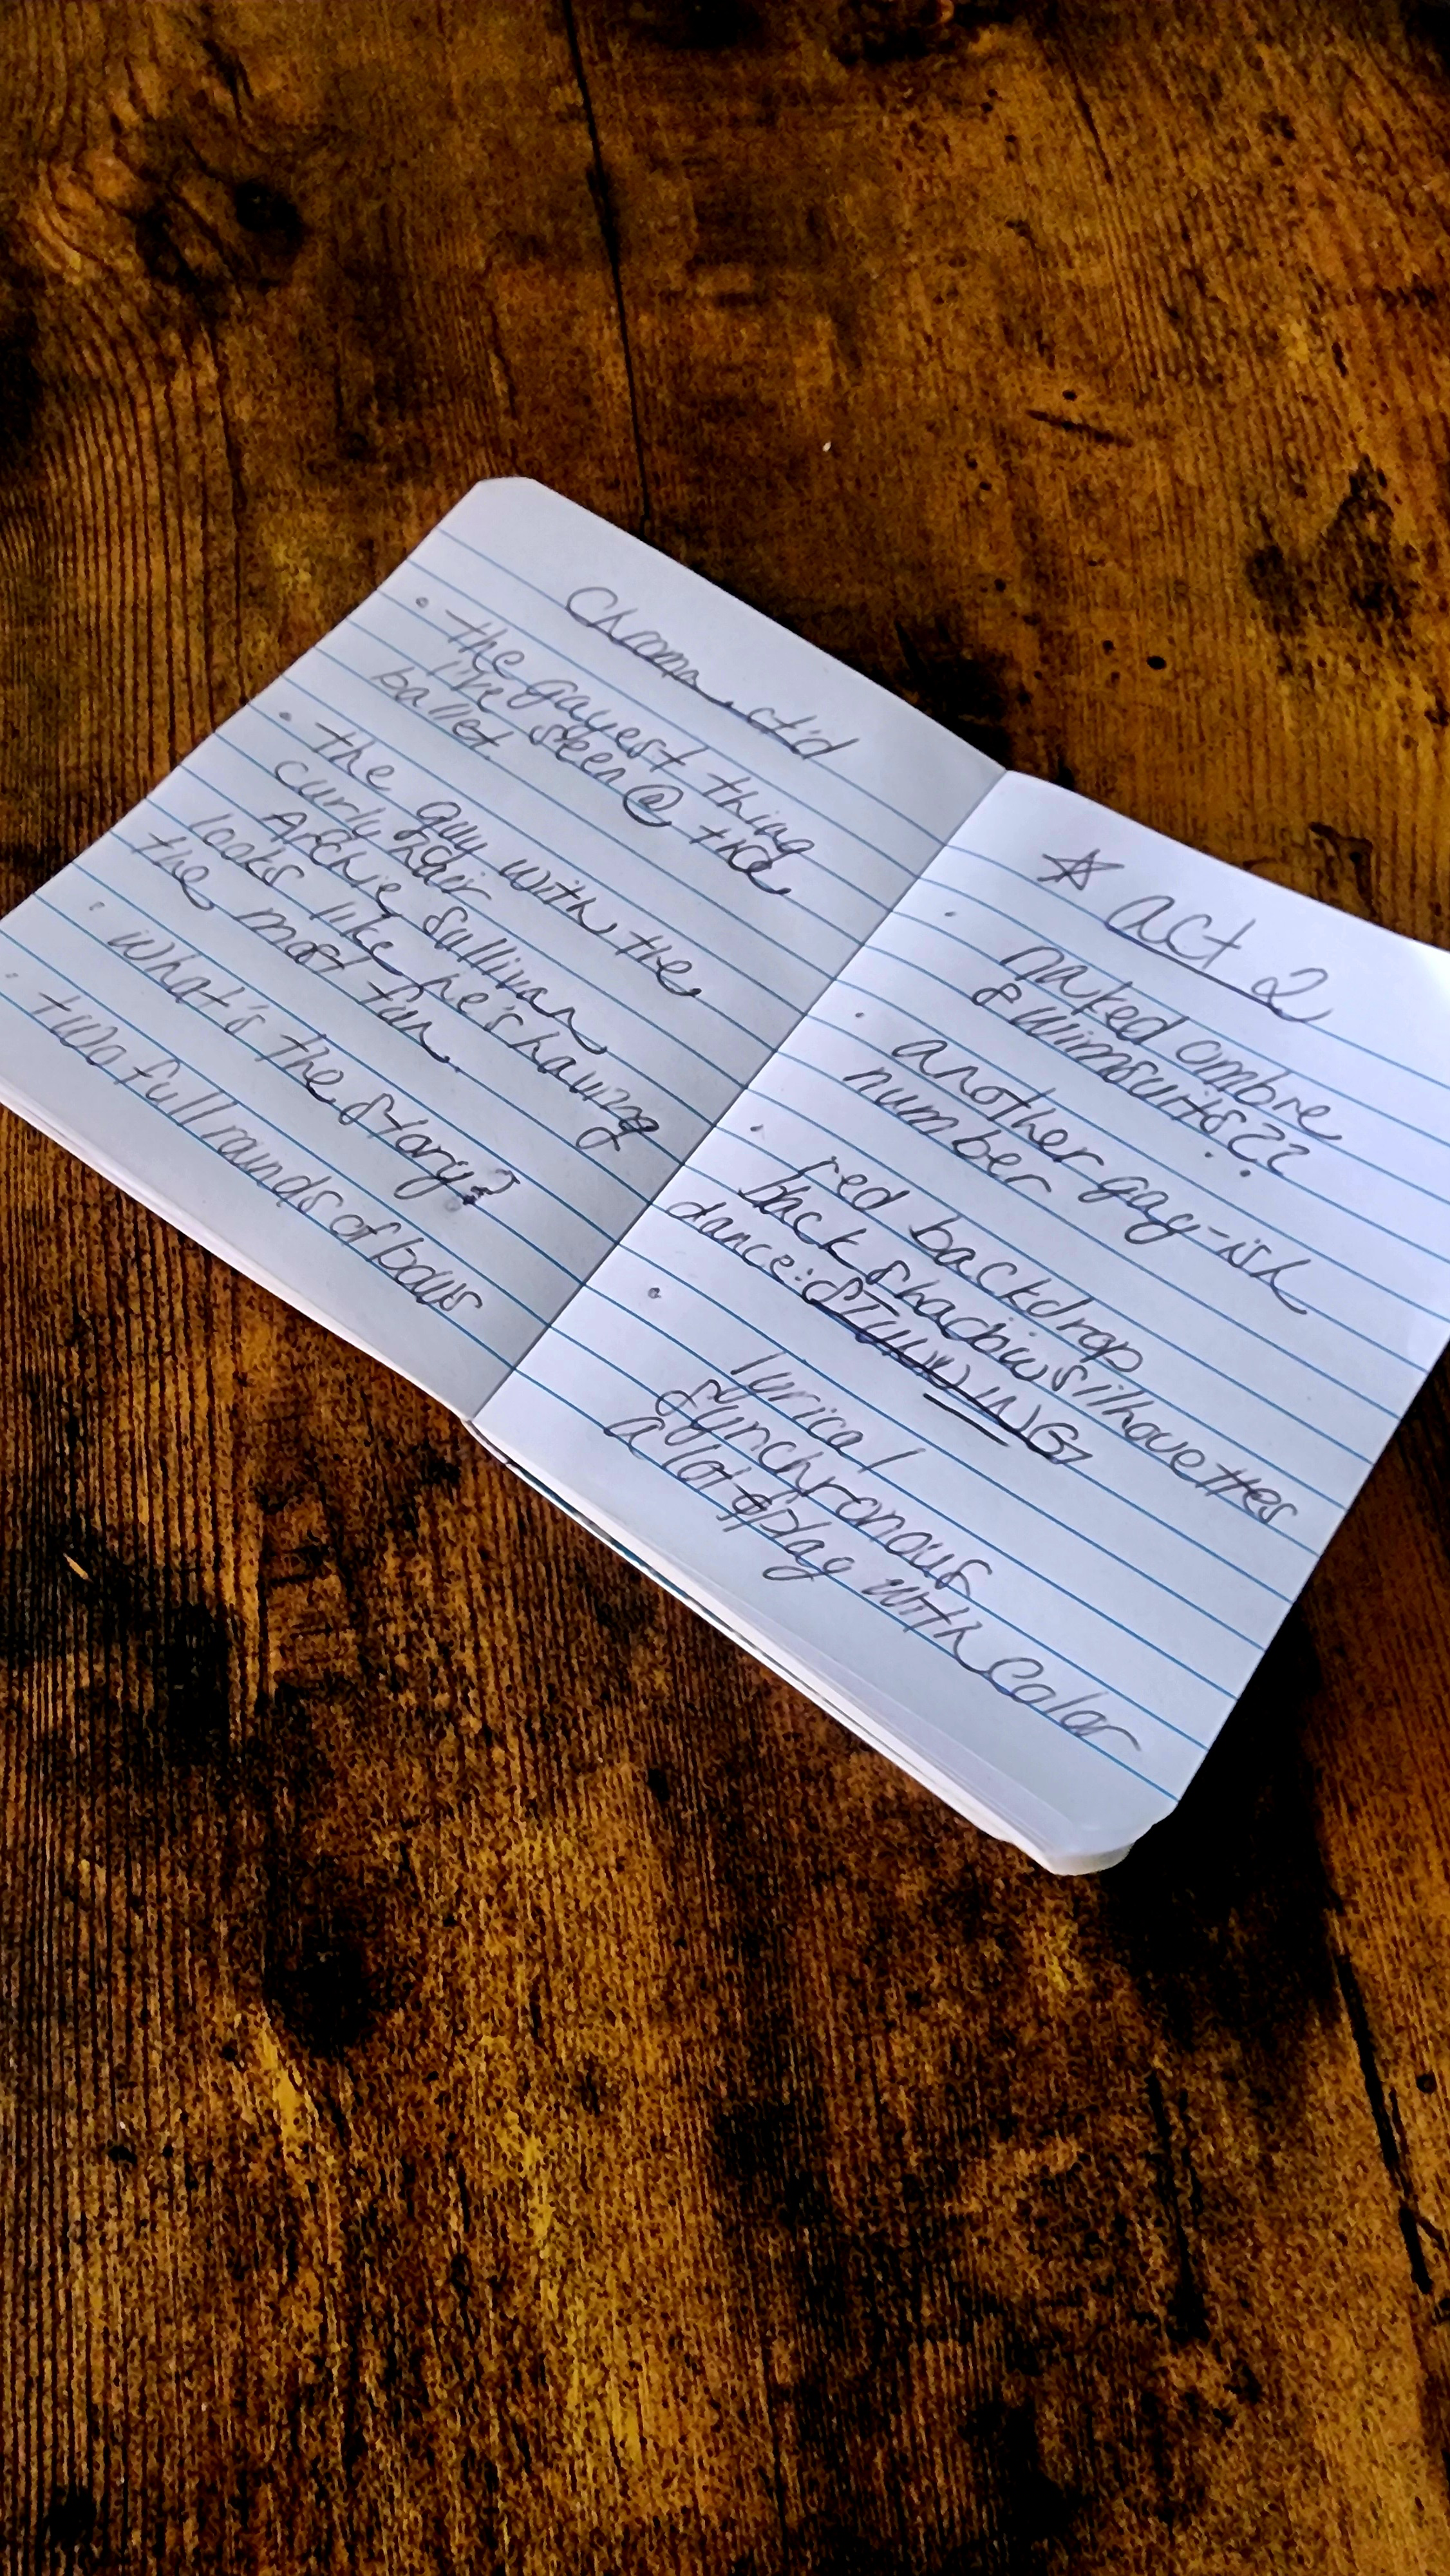 Chroma, ct'd
• the gayest thing
I've seen @ the
ballet.
• the guy with the
curly hair
Archie Sullivan
looks like he's having
the most fun.
• what's the story?
• two full rounds of bows
☆ act 2
• naked ombre
swimsuits??
• another gay-ish
number
• red backdrop
back shadow silhouettes
dance: STUNNING
• lyrical
synchronous
a lot of play with color